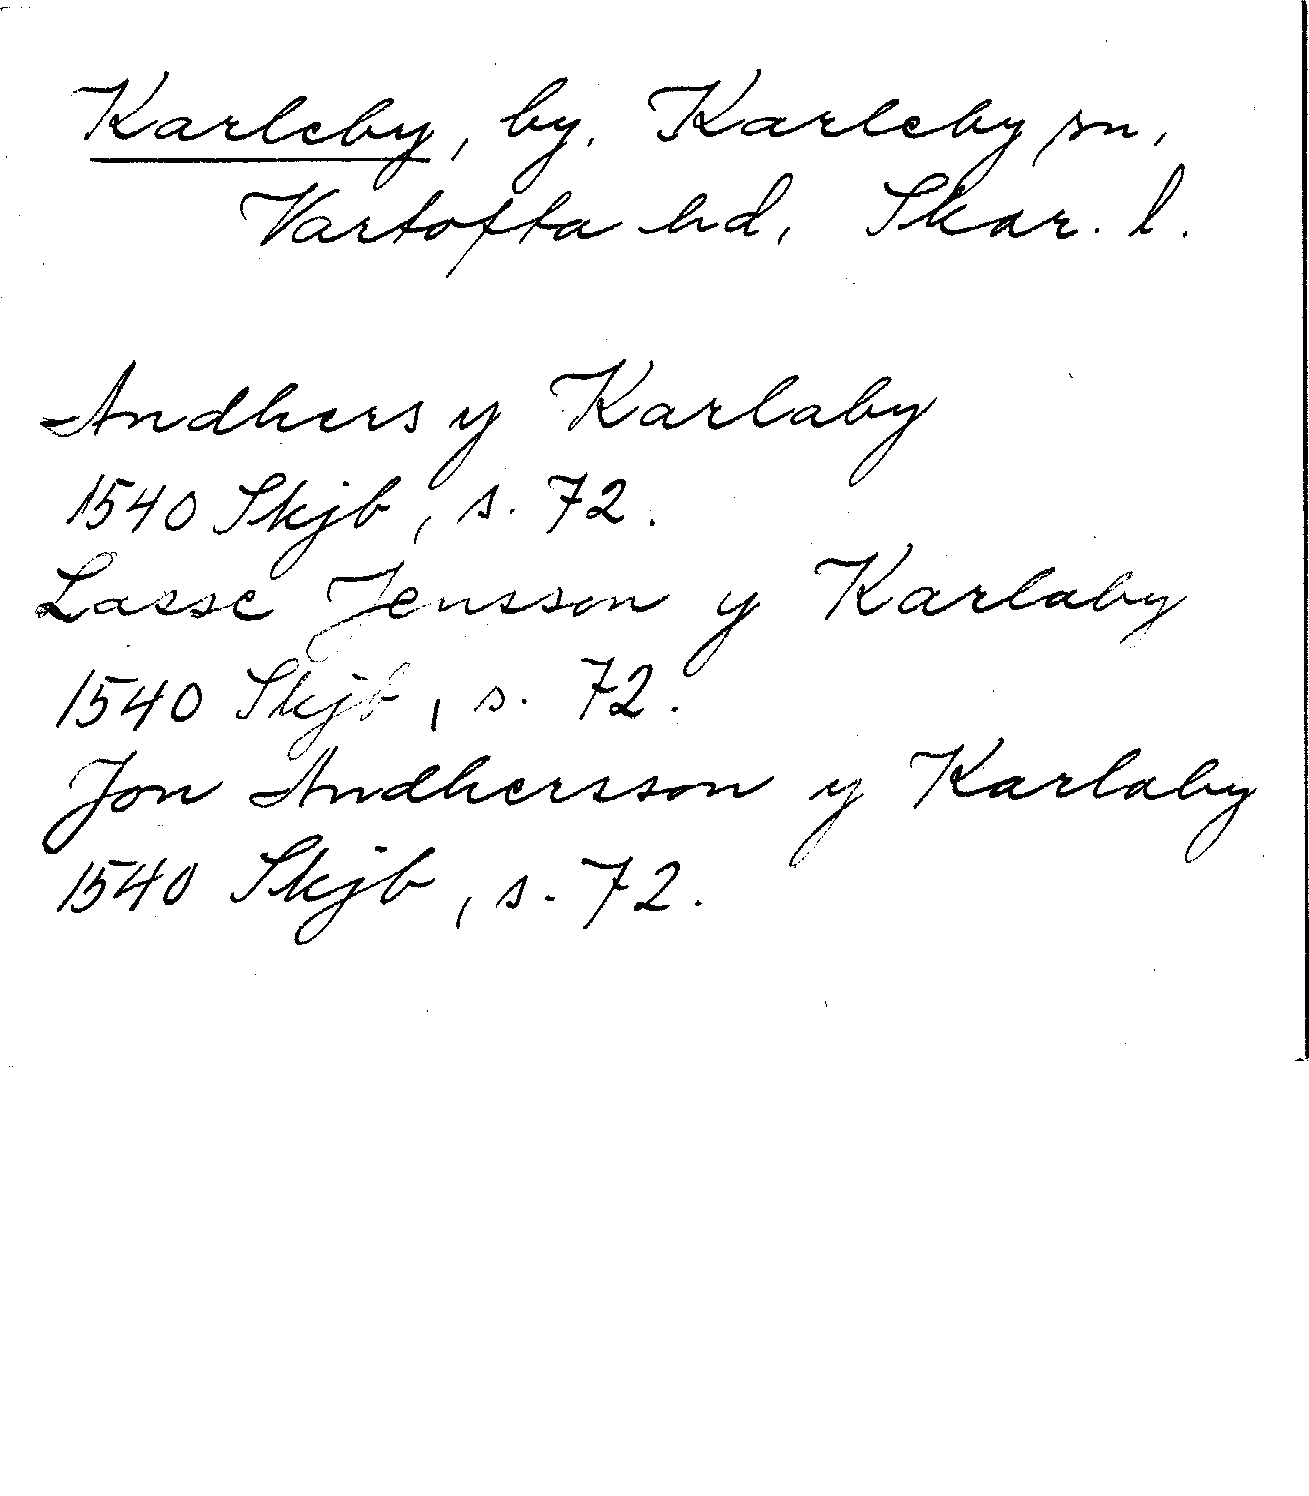 Karleby, by, Karleby sn,
Vartofta hd, Skar. l.
Andhers y Karlaby
1540 Skjb, s. 72.
Lasse Jensson y Karlaby
1540 Skjb, s. 72.
Jon Andhersson y Karlaby
1540 Skjb, s. 72.